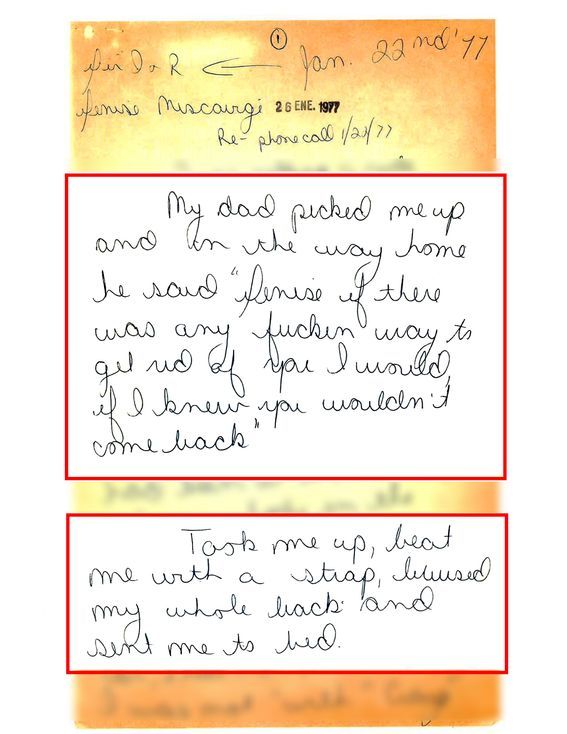 ①
← Jan. 22nd '77
Denise Miscavige 26 ENE. 1977
Re- phone call
My dad picked me up
and on the way home
he said "Denise if there
was any fuckin way to
get rid of you I would,
if I knew you wouldn't
come back"
Took me up, beat
me with a strap, bruised
my whole back and
sent me to bed.